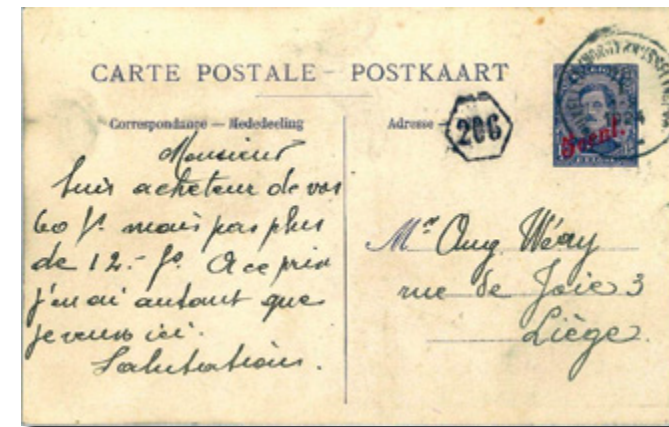 CARTE POSTALE – POSTKAART
Correspondance — Mededeeling
Adresse –
206
5 cent.
1924
Monsieur
Suis acheteur de vos
60 f. mais pas plus
de 12.- fs. A ce prix
j'en ai autant que
je veux ici.
Salutations.
Mr Aug Wéry
rue de Joie 3
Liège.